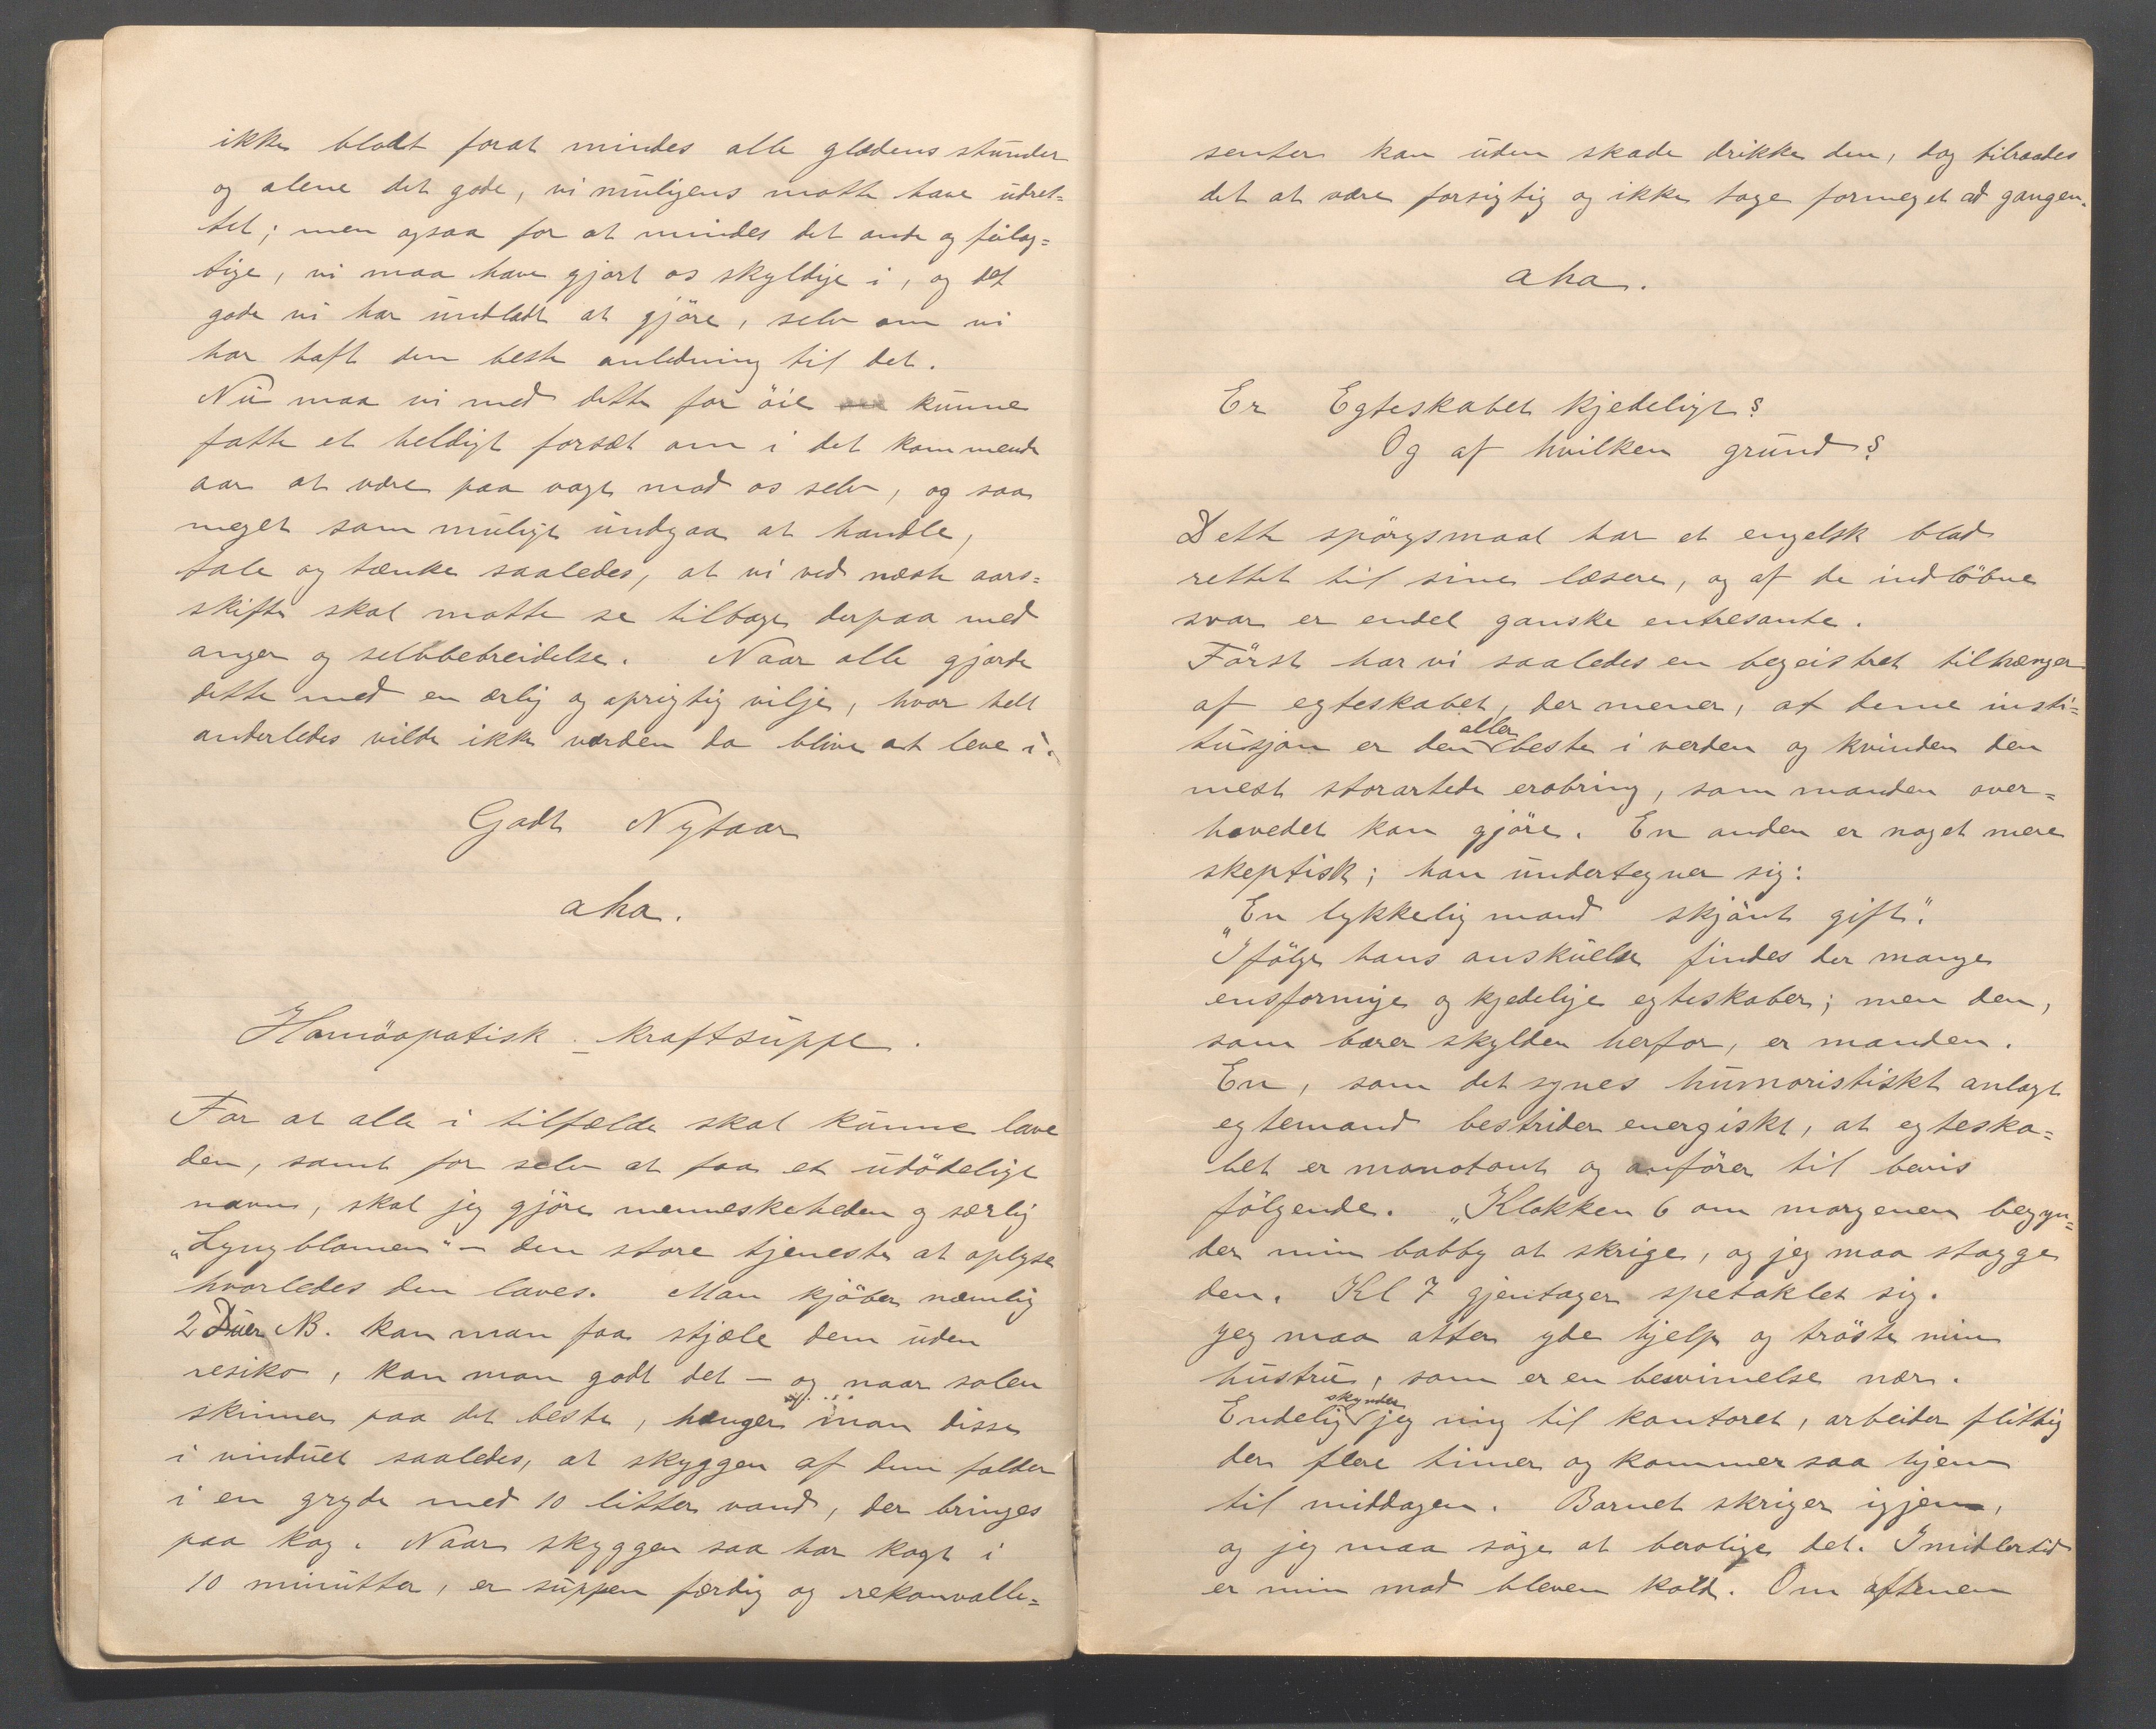 ikke blodt forat mindes alle glædens stunder
og alene det gode, vi muligens motte have udret=
tet; men ogsaa for at mindes det onde og feilag=
tige, vi maa have gjort os skyldige i, og det
gode vi har undladt at gjöre, selv om vi
har haft den beste anledning til det.
Nu maa vi med dette for öie kunne
fatte et heldigt forsæt om i det kommende
aar at være paa vagt mod os selv, og saa
meget som muligt undgaa at handle,
tale og tænke saaledes, at vi ved næste aars=
skifte skal motte se tilbage derpaa med
anger og selvbebreidelse. Naar alle gjorde
dette med en ærlig og oprigtig vilje, hvor helt
anderledes vilde ikke værden da blive at leve i.
Godt Nytaar
aha.
Homöopatisk - kraftsuppe.
For at alle i tilfælde skal kunne lave
den, samt for selv at faa et udödeligt
navn, skal jeg gjöre menneskeheden og særlig
„Lyngblomen" - den store tjeneste at oplyse
hvorledes den laves. Man kjöber nemlig
2 Duer NB. kan man faa stjæle dem uden
resiko, kan man godt det - og naar solen
skinner paa det beste, hænger man disse
i vinduet saaledes, at skyggen af dem falder
i en gryde med 10 litter vand, der bringes
paa kog. Naar skyggen saa har kogt i
10 minutter, er suppen færdig og rekonvalle=
senter kan uden skade drikke den, dog tilraades
det at være forsigtig og ikke tage formeget ad gangen.
aha.
Er Egteskabet kjedeligt?
Og af hvilken grund?
Dette spörgsmaal har et engelsk blad
rettet til sine læsere, og af de indlöbne
svar er endel ganske entresante.
Först har vi saaledes en begeistret tilhænger
af egteskabet, der mener, at denne insti=
tusjon er den aller beste i verden og kvinden den
mest storartede erobring, som manden over=
hovedet kan gjöre. En anden er noget mere
skeptisk; han undertegner sig:
„En lykkelig mand skjönt gift".
Ifölge hans anskuelse findes der mange
ensformige og kjedelige egteskaber; men den,
som bærer skylden herfor, er manden.
En, som det synes humoristiskt anlagt
egtemand bestrider energiskt, at egteska=
bet er monotont og anförer til bevis
fölgende. „Klokken 6 om morgenen begyn=
der min babby at skrige, og jeg maa stagge
den. Kl 7 gjentager spetaklet sig.
Jeg maa atter yde hjelp og tröste min
hustru, som er en besvimelse nær.
Endelig skynder jeg mig til kontoret, arbeider flittig
der flere timer og kommer saa hjem
til middagen. Barnet skriger igjen,
og jeg maa söge at berolige det. Imidlertid
er min mad bleven kold. Om aftenen